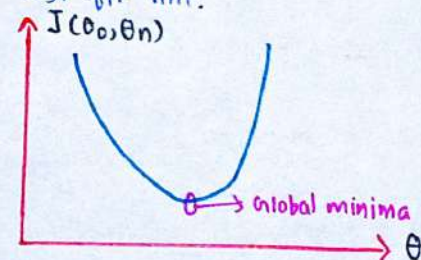 J(θ₀,θn)
Global minima
θ